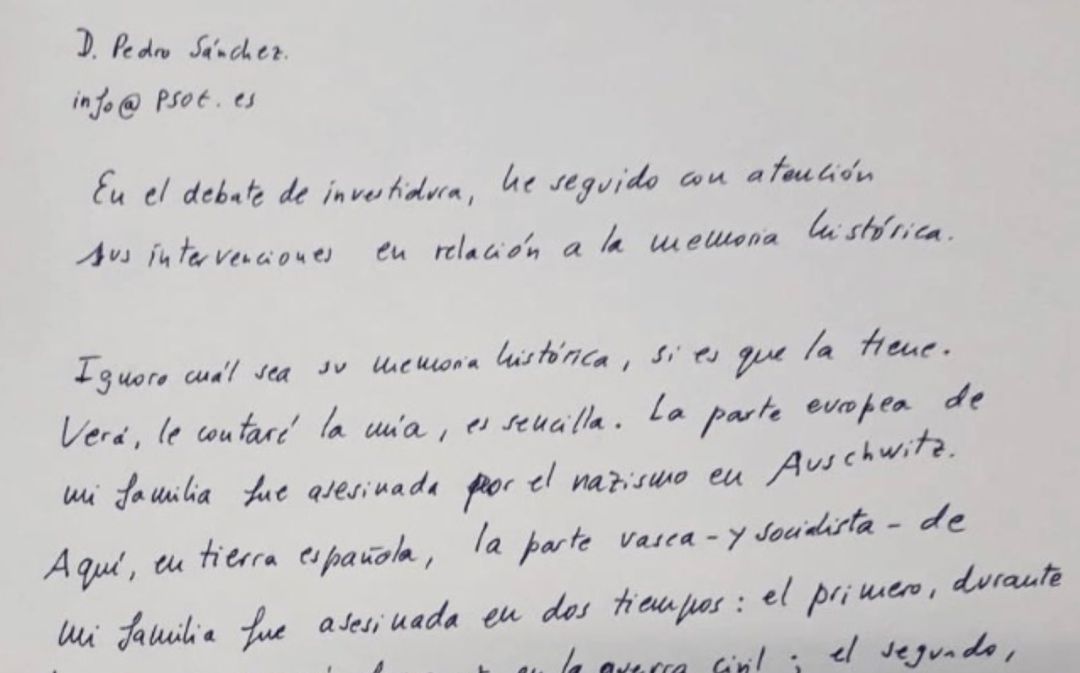 D. Pedro Sánchez.
info@psoe.es
En el debate de investidura, he seguido con atención
sus intervenciones en relación a la memoria histórica.
Ignoro cuál sea su memoria histórica, si es que la tiene.
Verá, le contaré la mía, es sencilla. La parte europea de
mi familia fue asesinada por el nazismo en Auschwitz.
Aquí, en tierra española, la parte vasca - y socialista - de
mi familia fue asesinada en dos tiempos: el primero, durante
en la guerra civil; el segundo,